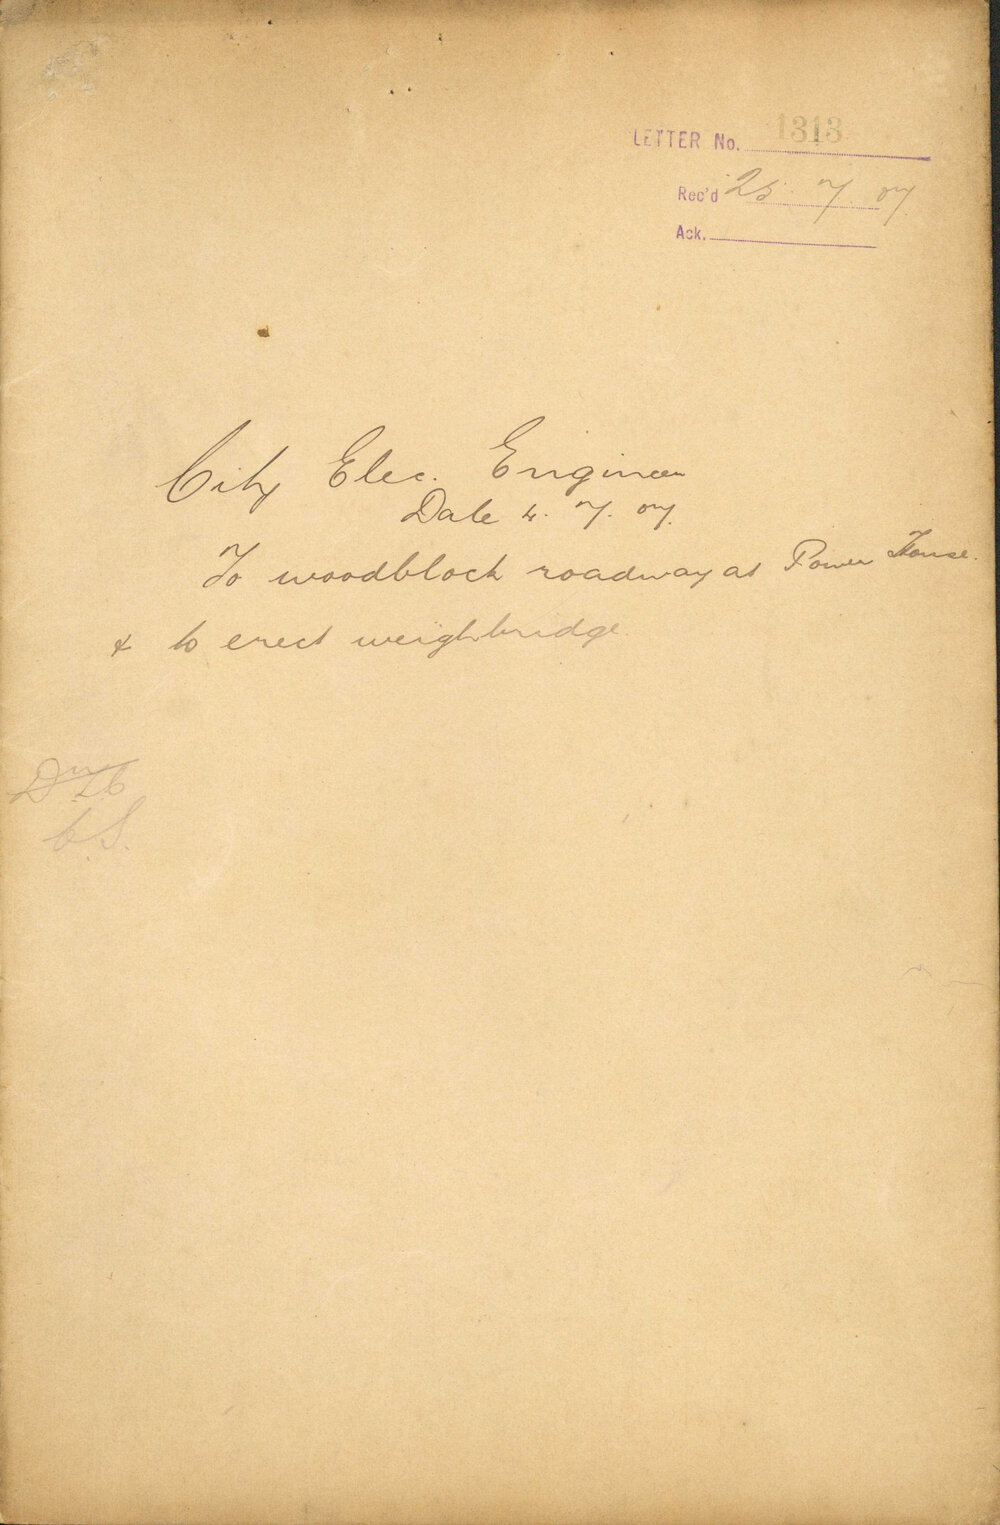 LETTER No. 1313
Rec'd 25. 7. 07
Ack.
City Elec. Engineer
Date 4. 7. 07.
To woodblock roadway at Power House.
& to erect weighbridge.
C.S.